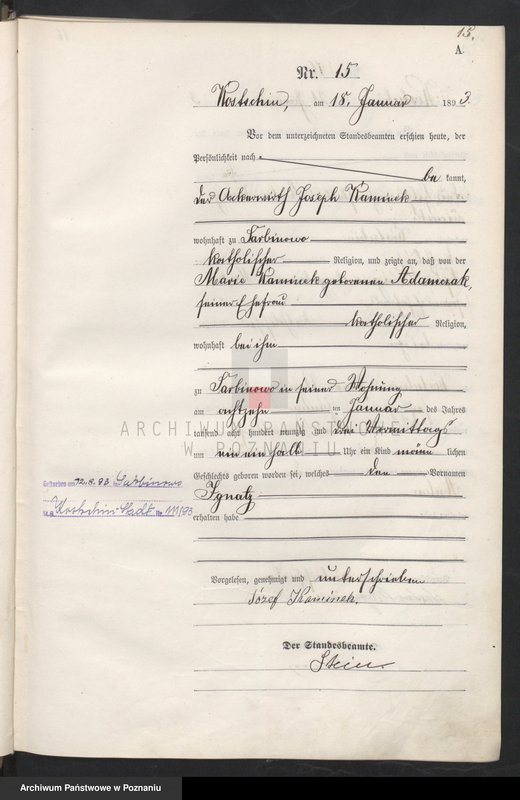 15.
A.
Nr. 15
Kostschin, am 18. Januar 1893.
Vor dem unterzeichneten Standesbeamten erschien heute, der
Persönlichkeit nach
be kannt,
der Ackerwirth Joseph Kaminek
wohnhaft zu Sarbinowo
katholischer Religion, und zeigte an, daß von der
Marie Kaminek geborenen Adamczak,
seiner Ehefrau
katholischer Religion,
wohnhaft bei ihm
zu Sarbinowo in seiner Wohnung
am achtzehn ten Januar des Jahres
tausend acht hundert neunzig und drei Vormittags
um ein ein halb Uhr ein Kind männ lichen
Geschlechts geboren worden sei, welches den Vornamen
Ignatz
erhalten habe
Gestorben am 22.8.93 Sarbinowo
Kostschin Stadt 111/93
Vorgelesen, genehmigt und unterschrieben
Józef Kaminek.
Der Standesbeamte.
Stein
ARCHIWUM PAŃSTWOWE
W POZNANIU
Archiwum Państwowe w Poznaniu